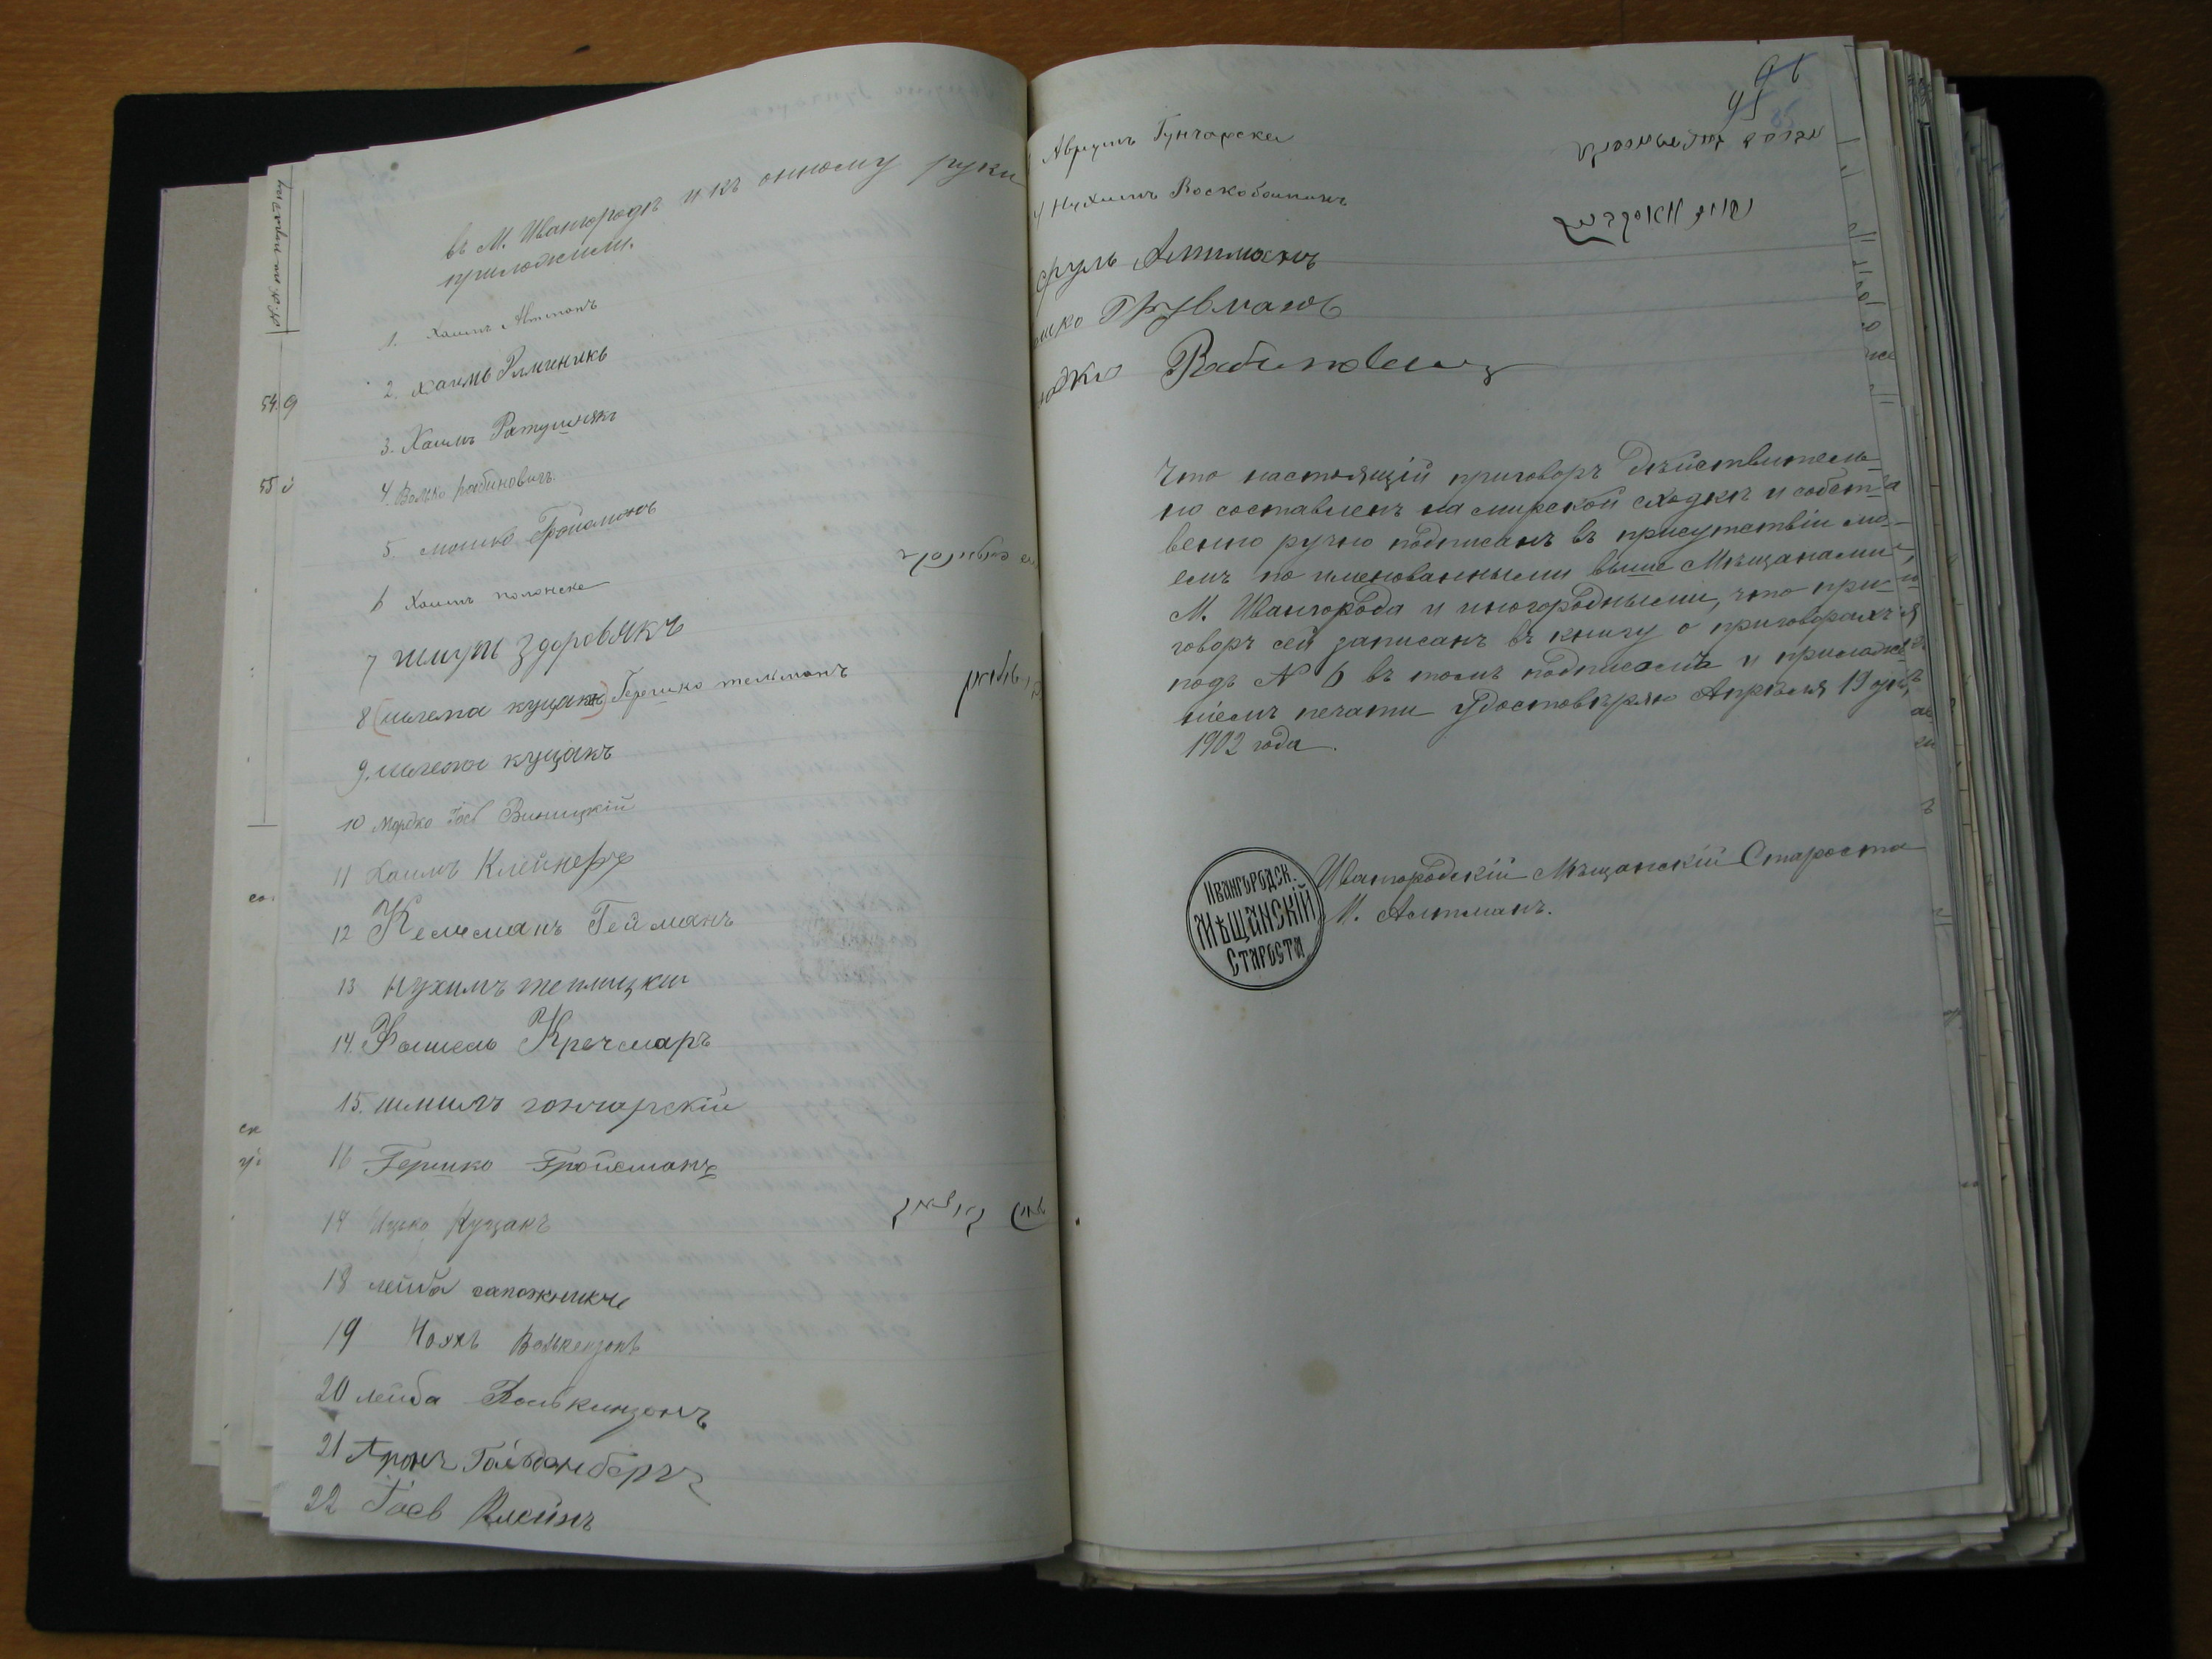 въ М. Ивангородѣ и къ онному руки
приложили.
1. Хаимъ Алтманъ
2. Хаимъ
3. Хаимъ Ратушнякъ
4. Волько рабиновичъ.
5. мошко Гройсманъ
6 Хаимъ полонске
7 шмуль Здоровякъ
8 (шлема куцакъ) Гершко тельманъ
9. шлема куцакъ
10 Мордко Іось Виницкій
11 Хаимъ Клейнеръ
12 Келманъ Гейманъ
13 Нухимъ теплицкій
14. Фаишель Кречмаръ
15. шмилъ гончарскій
16 Гершко Гройсманъ
17 Ицко Куцакъ
18 лейба сапожникъ
19 Нояхъ Волькензонъ
20 лейба Волькинзонъ
21 Аронъ Гольденбергъ
22 Іосъ Клейнъ
54.
55
96
95
85
Аврумъ Гунчарске
Нухимъ Воскобойникъ
сруль Алтманъ
Грувманъ
Рабиновичъ
Что настоящій приговоръ дѣйствитель-
но составленъ на мирской сходкѣ и собст-
венно ручно подписанъ въ присутствіи мо-
емъ по именованными выше Мѣщанами
М. Ивангорода и иногородными, что при-
говоръ сей записанъ въ книгу о приговорахъ
подъ № 6 въ томъ подписомъ и приложе-
ніемъ печати удостовѣряю Апрѣля 19 дня,
1902 года.
Ивангородскій Мѣщанскій Староста
И. Алтманъ.
Ивангородск.
Мѣщанскій
Староста